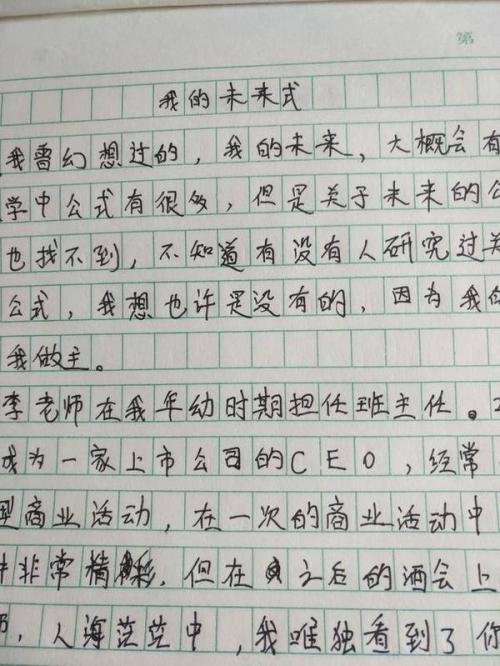 第
我的未来式
我曾幻想过的，我的未来，大概会有
学中公式有很多，但是关于未来的公
也找不到，不知道有没有人研究过关
公式，我想也许是没有的，因为我的
我做主。
李老师在我年幼时期担任班主任。
成为一家上市公司的CEO，经常
型商业活动，在一次的商业活动中
非常精彩，但在之后的酒会上
，人海茫茫中，我唯独看到了你